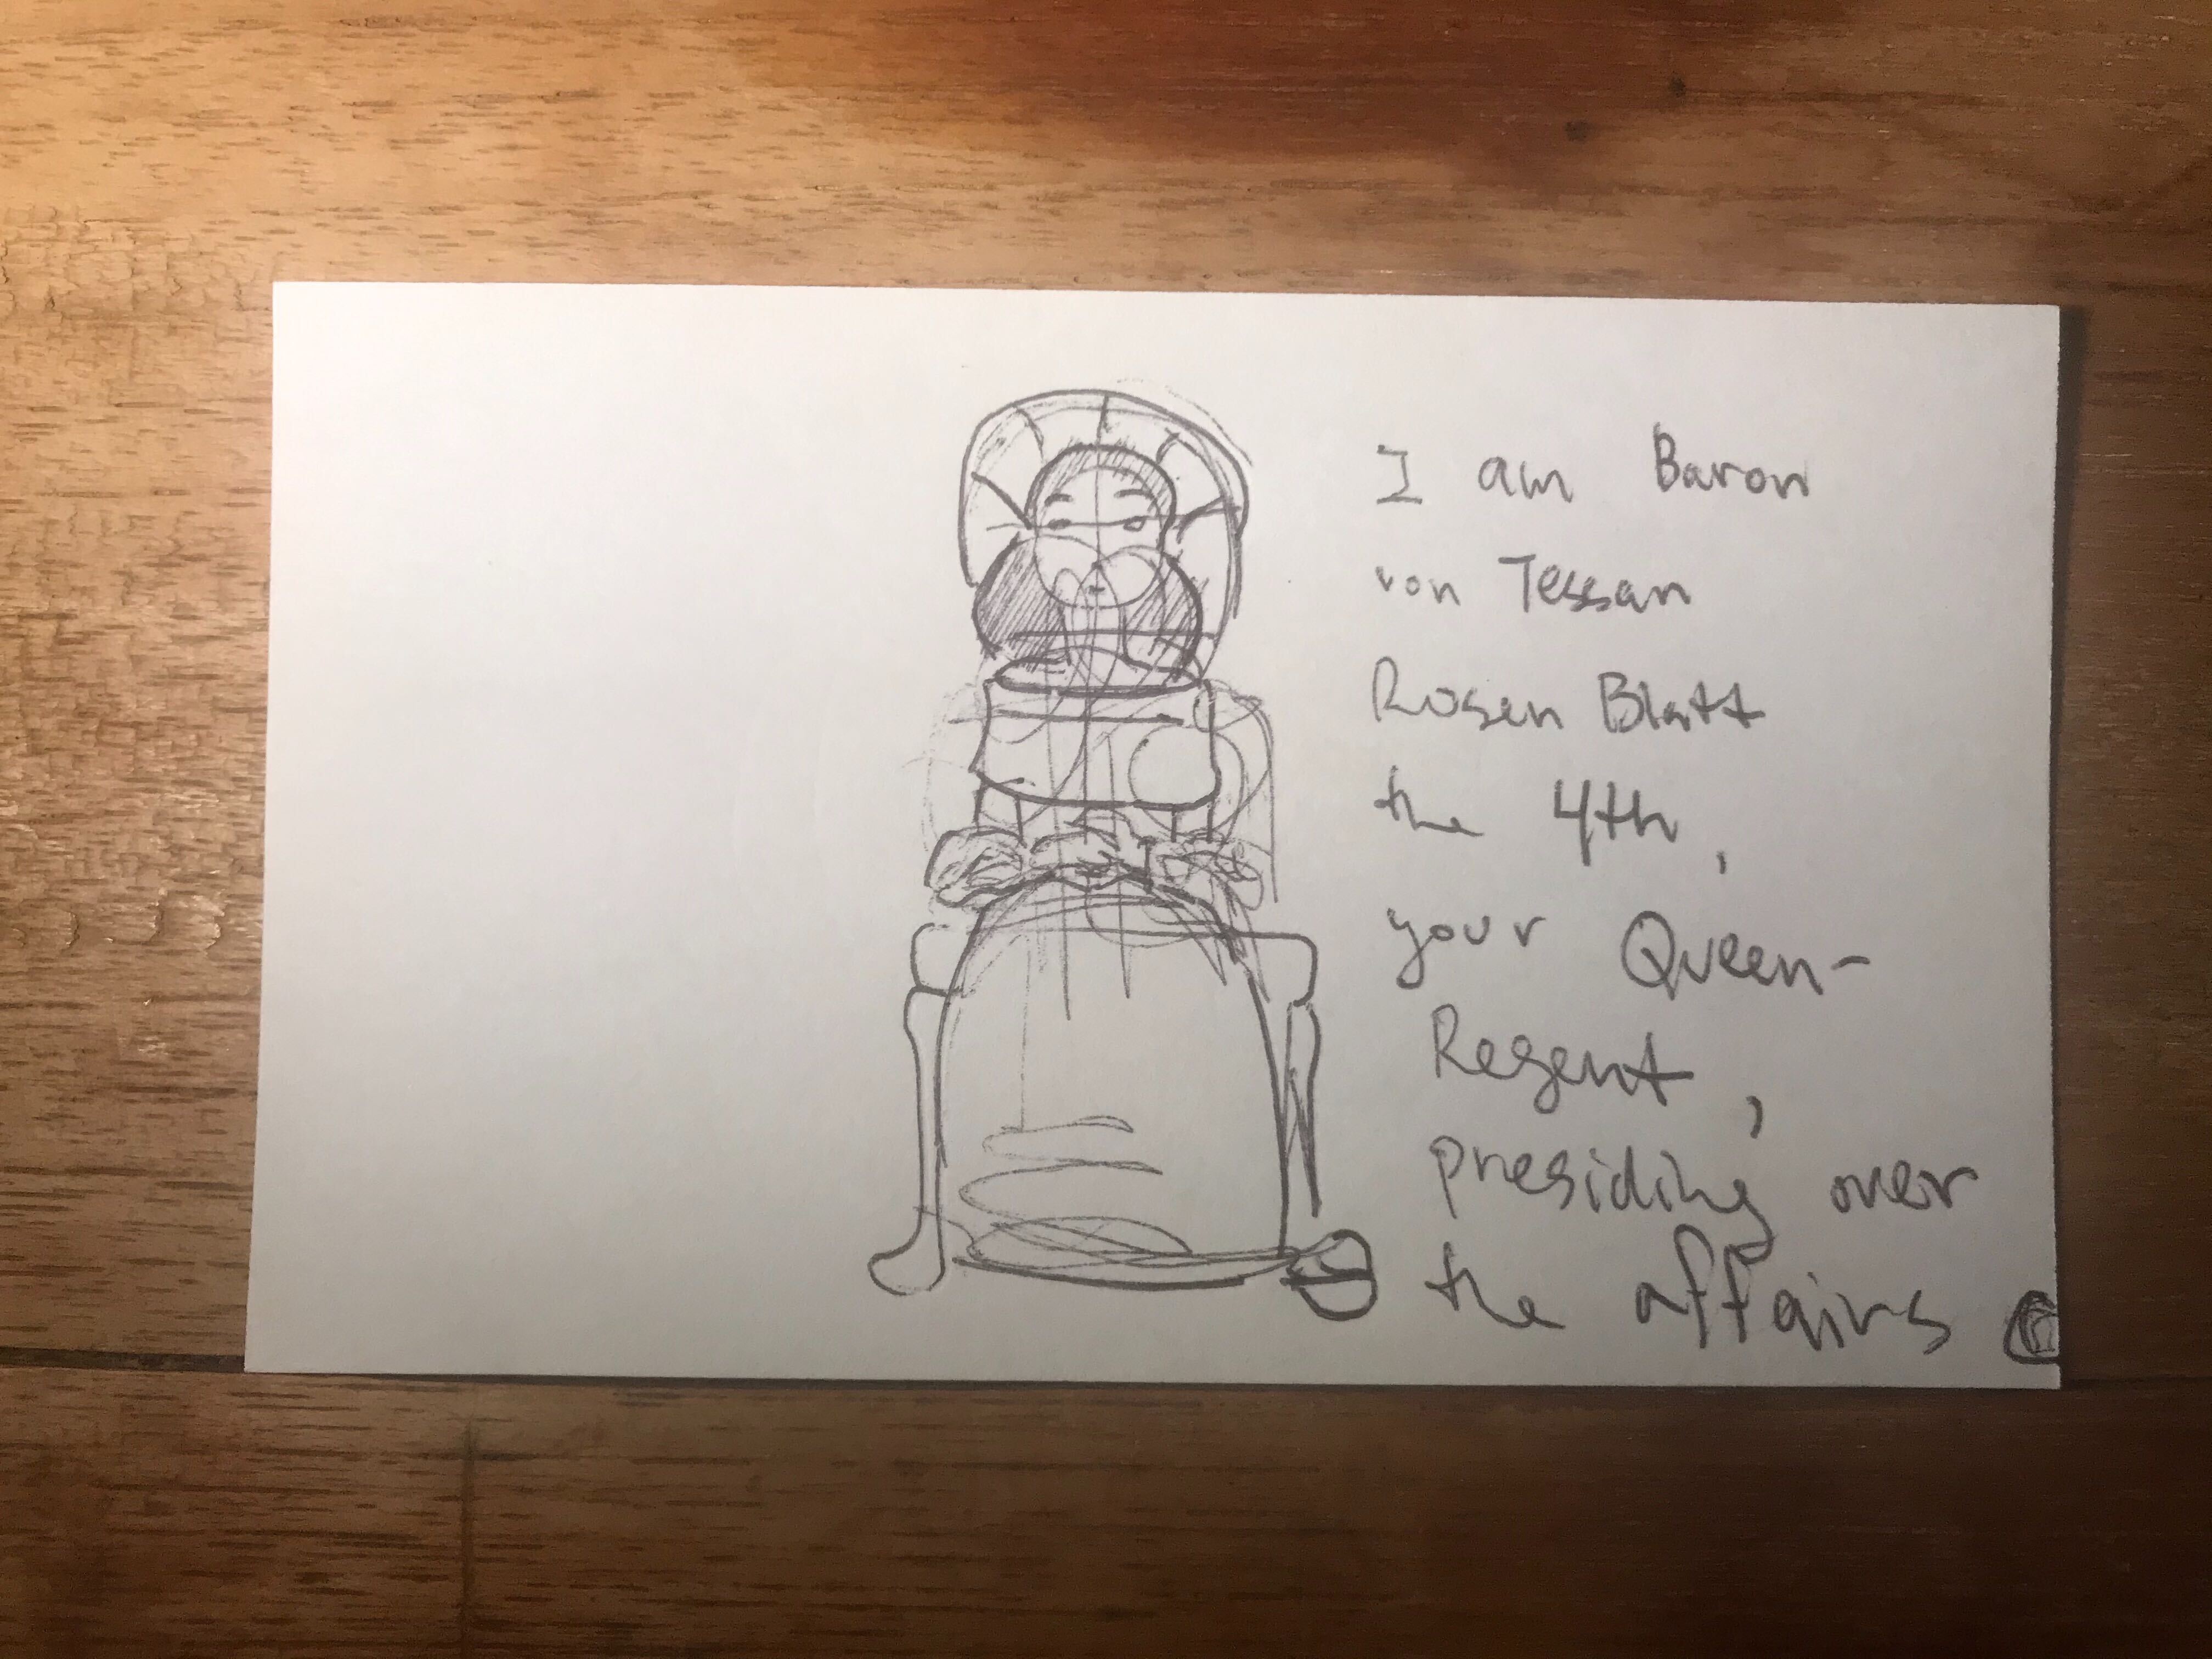 I am Baron
von Tessan
Rosen Blatt
the 4th,
your Queen-
Regent,
presiding over
the affairs